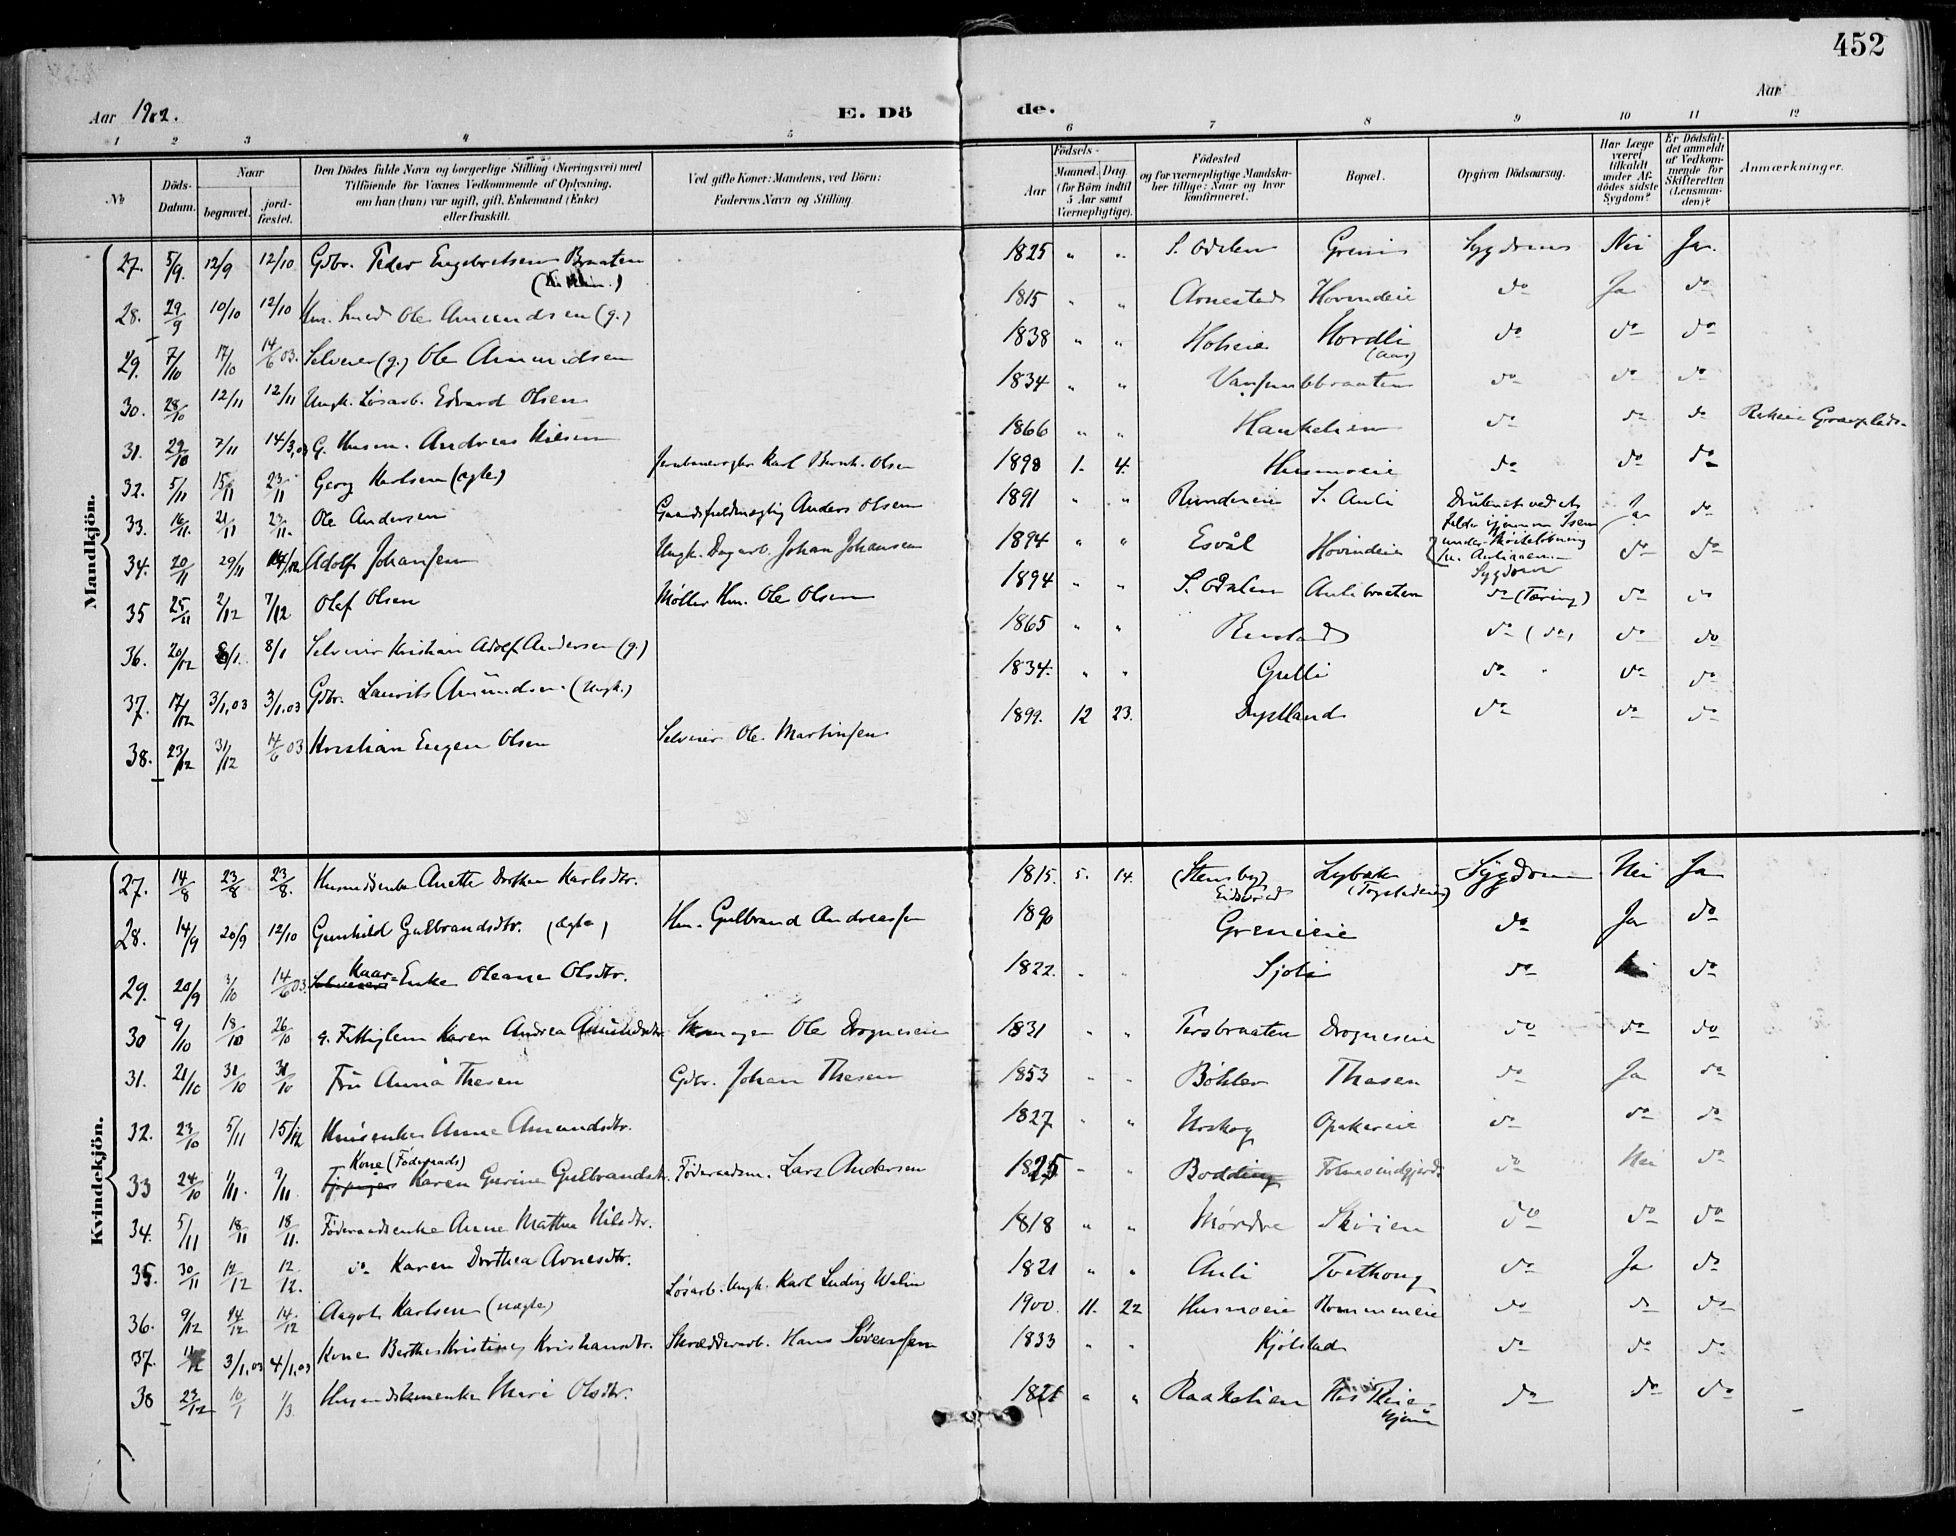 452
Aar 1902. E. Döde. Aar
1 2 3 4 5 6 7 8 9 10 11 12
No Döds-Datum. Naar begravet. jord-fæstet. Den Dödes fulde Navn og borgerlige Stilling (Næringsvei) med Tilföiende for Voxnes Vedkommende af Oplysning, om han (hun) var ugift, gift, Enkemand (Enke) eller fraskilt. Ved gifte Koner: Mandens, ved Börn: Faderens Navn og Stilling. Födsels- Aar Maaned. Dag (for Börn indtil 5 Aar samt Værnepligtige). Födested og for værnepligtige Mandskaber tillige: Naar og hvor konfirmeret. Bopæl. Opgiven Dödsaarsag. Har Læge været tilkaldt under Afdödes sidste Sygdom? Er Dödsfaldet anmeldt af Vedkommende for Skifteretten (Lensmanden)? Anmærkninger.
Mandkjön.
27. 5/9. 12/9 12/10 Gdbr. Peder Engebretsen Braaten 1825 " " S. Odalen Greni Sygdom Nei Ja.
28. 29/9 10/10 12/10 Hm. Smed Ole Amundsen (g.) 1815 " " Arnestad Hovindeie do Ja do
29. 7/10 17/10 14/6 03. Selveier (g.) Ole Amundsen 1838 " " Holseie Hordli (Aas) do do do
30. 28/10 12/11 12/11 Ungk. Løsarb. Edvard Olsen 1834 " " do do do
31. 29/10 7/11 14/3,03 G. Husm. Andreas Nilsen 1866 " " do do do
32. 5/11 15/11 23/11 Georg Karlsen (ægte) Karl Bernh. Olsen 1898 1. 4. Husmoeie do do do
33. 16/11. 21/11 23/11. Ole Andersen Gaardsfuldmægtig Anders Olsen 1891 " " Rundereie S. Auli Druknet ved at falde gjennem Isen under Skøiteløbning Ja do
34. 20/11 29/11 Adolf Johansen Ungk. Dagarb. Johan Johansen 1894 " " Esvål Hovindeie Sygdom do do
35 25/11 2/12 7/12 Olaf Olsen Møller Hm. Ole Olsen 1894 " " S. Odalen Aulibraaten do (Tæring) do do
36. 20/12 8/1. 8/1 Selveier Kristian Adolf Andersen (g.) 1865 " " do (do) do do
37. 17/12 3/1,03 3/1,03 Gdbr. Laurits Amundsen (Ungk.) 1834. " " Gulli do " do do
38. 23/12 31/12 14/6 03 Kristian Eugen Olsen Selveier Ole Martinsen 1899. 12 23. Dystland do do do
Kvindekjön.
27. 14/8 23/8 23/8. Anette Dorthea Karlsdtr. 1815. 5. 14. (Stensby) Eidsvold Lybæk Sygdom Nei Ja
28. 14/9 20/9 12/10 Gunhild Gulbrandsdtr. (ægte) Hm. Gulbrand Andreassen 1890 Grenieie do Ja do
29. 20/9 3/10 14/6 03. Kaar-Enke Oleane Olsdtr. 1822. " " Sjoli do do
30 9/10 18/10 26/10 g. Fattiglem Karen Andrea Amundsdtr. Skomager Ole Drogneseie 1831 " " Tersbraaten Drogneseie do do do
31. 21/10 31/10 31/10 Fru Anna Thesen Gdbr. Johan Thesen 1853 " " Bøhler Thesen do Ja do
32. 23/10 5/11 15/12 Anne Amundsdtr. 1827 " " Urskog Opakereie do do do
33 24/10 1/11. 9/11. Kone (Føderaads) Karen Gurine Gulbrandsdtr. Føderaadsm. Lars Andersen 1825 " " Bodding do Nei do
34. 5/11 18/11 18/11. Føderaadsenke Anne Mathea Nilsdtr. 1818 " " Mørdre Skøien do do do
35. 30/11 12/12 12/12. do Karen Dorthea Arnesdtr. 1821 " " Auli Tvethoug do Ja do
36. 9/12 14/12 14/12 Aagot Karlsen (uægte) Løsarb. Ungk. Karl Ludvig Walin 1900. 11. 22 Husmoeie Rommeneie do do do
37. 3/1,03 4/1,03 Kone Berthe Kristine Kristiansdtr. Skrædderarb. Hans Sørensen 1833 " " Kjølstad do do do
38 23/12 10/1 1/3. Marie Olsdtr. " " Raakelien do do do